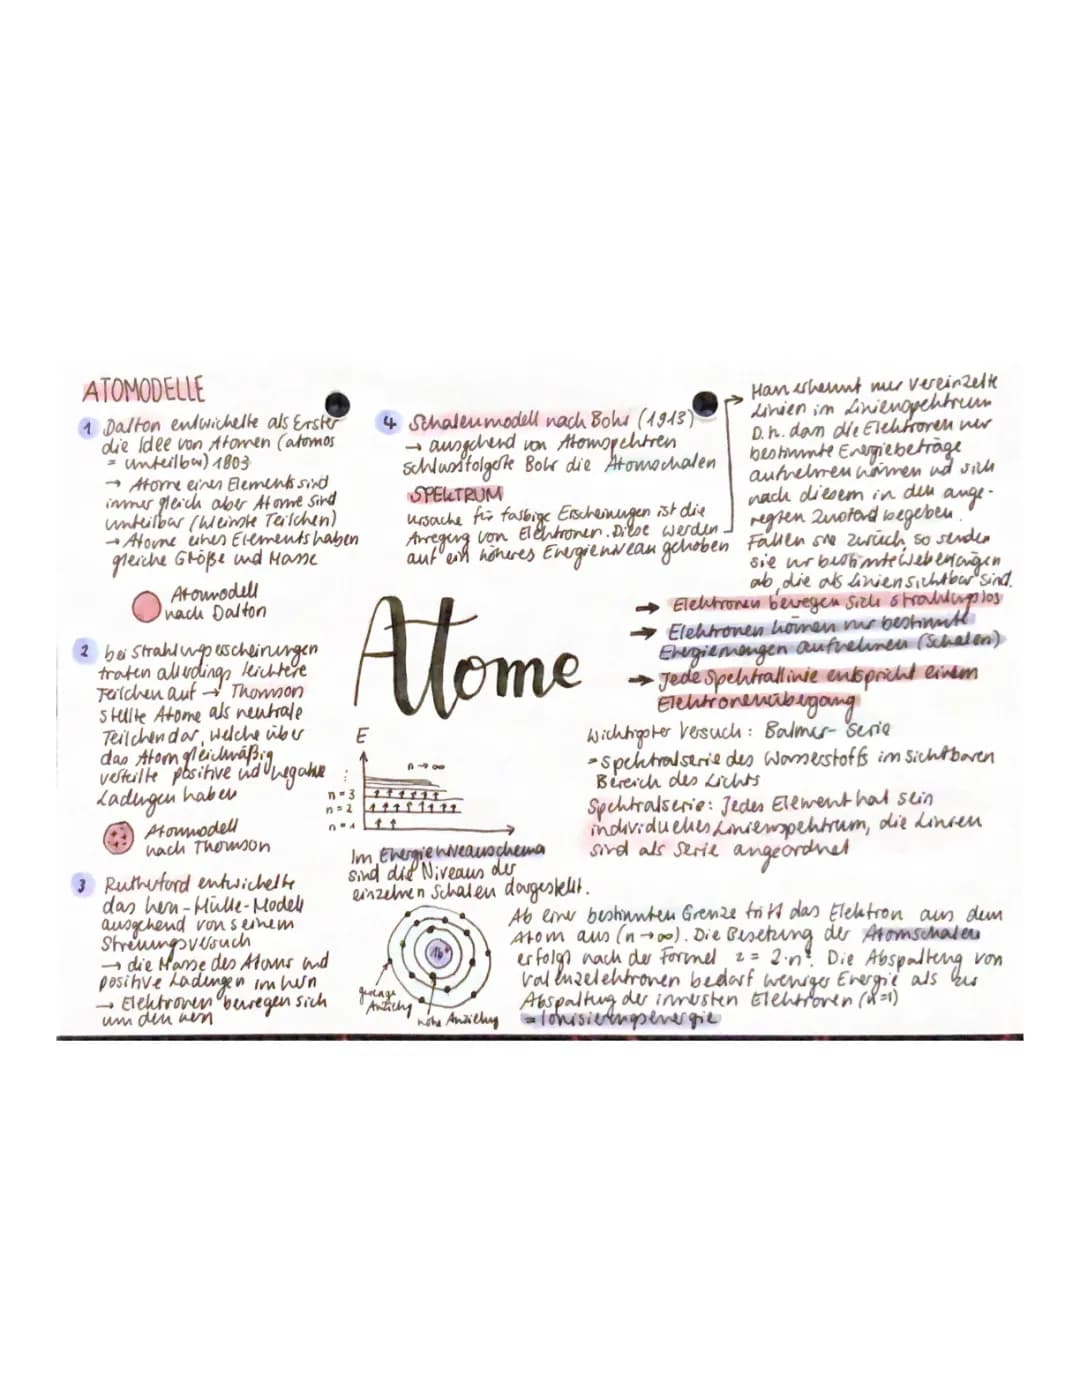 ATOMODELLE
1 Dalton entwickelte als Erster
die Idee von Atomen (atomos
= unteilbar) 1803
→ Atome eines Elements sind
immer gleich aber Atome sind
unteilbar (kleinste Teilchen)
→ Atome eines Elements haben
gleiche Größe und Masse
Atommodell
nach Dalton
2 bei Strahlungserscheinungen
traten allerdings leichtere
Teilchen auf → Thomson
stellte Atome als neutrale
Teilchen dar, welche über
das Atom gleichmäßig
verteilte positive und negative
Ladungen haben
Atommodell
nach Thomson
3 Rutherford entwickelte
das Kern-Hülle-Modell
ausgehend von seinem
Streuungsversuch
→ die Masse des Atoms und
positive Ladungen im Kern
→ Elektronen bewegen sich
um den Kern
4 Schalenmodell nach Bohr (1913)
→ ausgehend von Atomspektren
schlussfolgerte Bohr die Atomschalen
SPEKTRUM
Ursache für farbige Erscheinungen ist die
Anregung von Elektronen. Diese werden
auf ein höheres Energieniveau gehoben
→ Man erkennt nur vereinzelte
Linien im Linienspektrum
D.h. dass die Elektronen nur
bestimmte Energiebeträge
aufnehmen können und sich
nach diesem in den ange-
regten Zustand begeben.
Fallen sie zurück, so senden
sie nur bestimmte Wellenlängen
ab, die als Linien sichtbar sind.
→ Elektronen bewegen sich strahlungslos
→ Elektronen können nur bestimmte
Energiemengen aufnehmen (Schalen)
→ Jede Spektrallinie entspricht einem
Elektronenübergang
Atome
Wichtigster Versuch: Balmer-Serie
= Spektralserie des Wasserstoffs im sichtbaren
Bereich des Lichts
Spektralserie: Jedes Element hat sein
individuelles Linienspektrum, die Linien
sind als Serie angeordnet
E
n→∞
n=3
n=2
n=1
Im Energieniveauschema
sind die Niveaus der
einzelnen Schalen dargestellt.
16+
geringe
Anziehung
hohe Anziehung
Ab einer bestimmten Grenze tritt das Elektron aus dem
Atom aus (n→∞). Die Besetzung der Atomschalen
erfolgt nach der Formel z = 2·n². Die Abspaltung von
Valenzelektronen bedarf weniger Energie als zur
Abspaltung der innersten Elektronen (n=1)
= Ionisierungsenergie